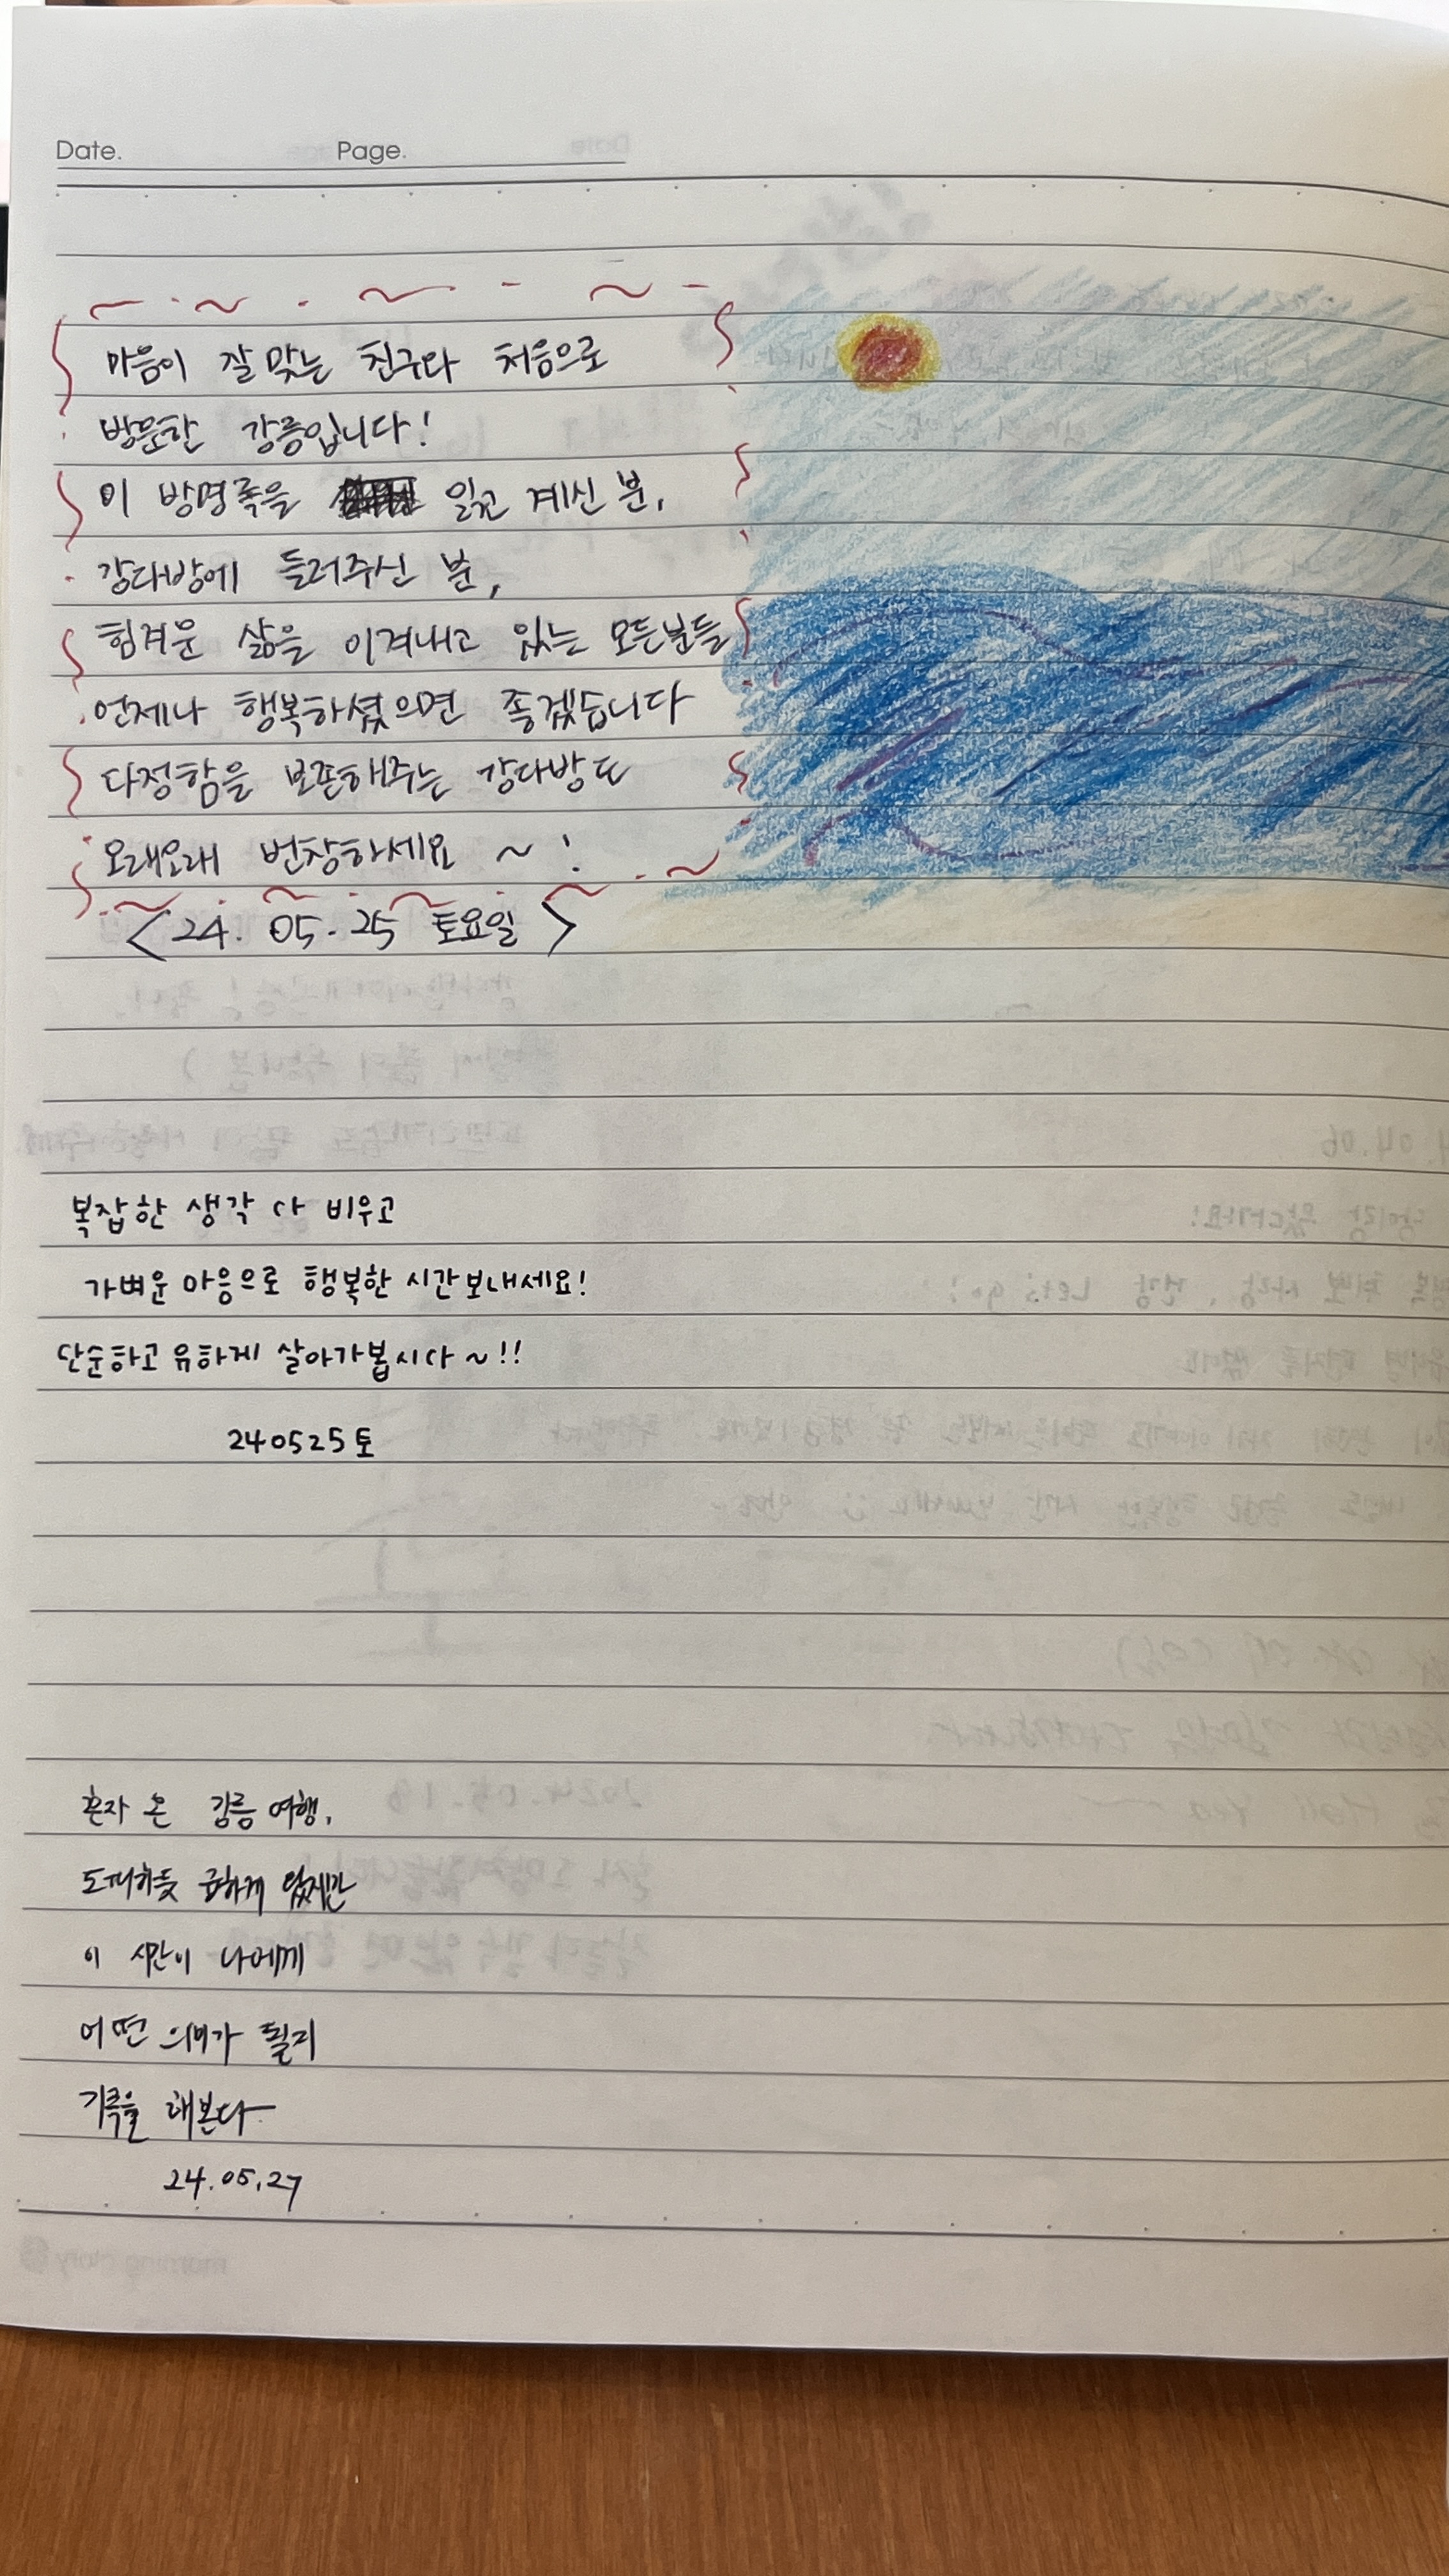 Date. Page.
마음이 잘 맞는 친구와 처음으로
방문한 강릉입니다!
이 방명록을 읽고 계신 분,
강다방에 들러주신 분,
힘겨운 삶을 이겨내고 있는 모든분들
언제나 행복하셨으면 좋겠습니다
다정함을 보존해주는 강다방도
오래오래 번창하세요 ~ !
<24. 05. 25 토요일>
복잡한 생각 다 비우고
가벼운 마음으로 행복한 시간보내세요!
단순하고 유하게 살아가봅시다~!!
240525토
혼자 온 강릉 여행,
도피하듯 급하게 왔지만
이 시간이 나에게
어떤 의미가 될지
기록을 해본다
24.05.27